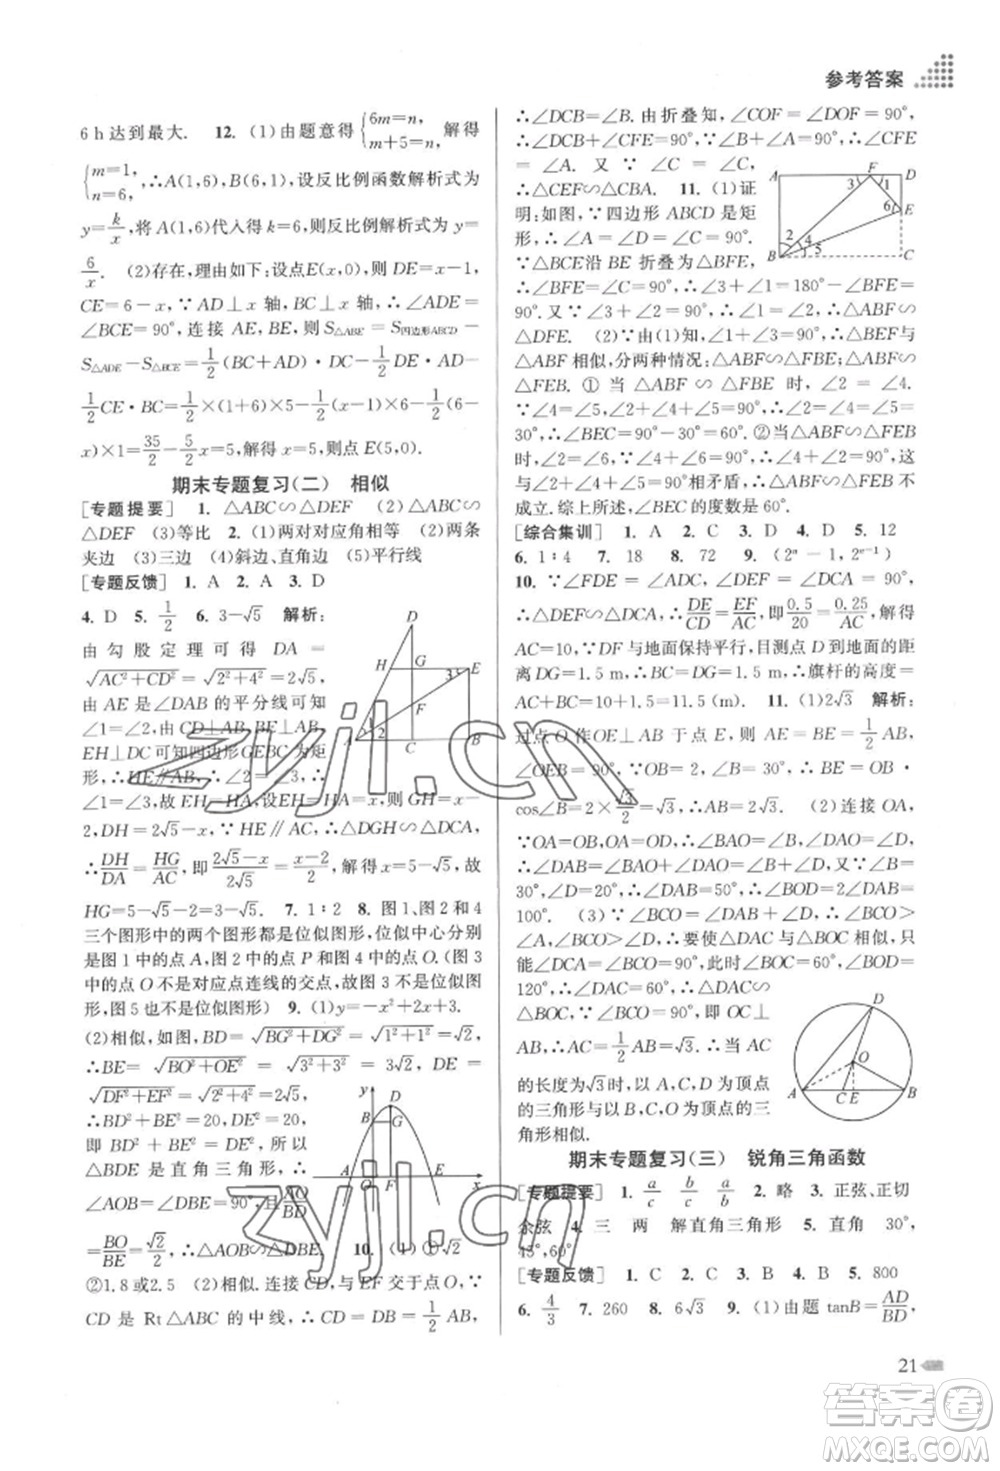 参考答案
6 h达到最大. 12. (1)由题意得{6m=n, m+5=n, 解得
{m=1, n=6, ∴A(1,6),B(6,1),设反比例函数解析式为
y=k/x,将A(1,6)代入得k=6,则反比例函数解析式为y=
6/x. (2)存在,理由如下:设点E(x,0),则DE=x-1,
CE=6-x,∵AD⊥x轴,BC⊥x轴,∴∠ADE=
∠BCE=90°,连接AE,BE,则S△ABE=S四边形ABCD-
S△ADE-S△BCE=1/2(BC+AD)·DC-1/2DE·AD-
1/2CE·BC=1/2×(1+6)×5-1/2(x-1)×6-1/2(6-
x)×1=35/2-5/2x=5,解得x=5,则点E(5,0).
期末专题复习(二) 相似
[专题提要] 1. △ABC∽△DEF (2)△ABC∽
△DEF (3)等比 2. (1)两对对应角相等 (2)两条
夹边 (3)三边 (4)斜边、直角边 (5)平行线
[专题反馈] 1. A 2. A 3. D
4. D 5. 1/2 6. 3-√5 解析:
由勾股定理可得DA=
√(AC²+CD²)=√(1²+2²)=√5,
由AE是∠DAB的平分线可知
∠1=∠2,由CD⊥AB,BE⊥AB,
EH⊥DC可知四边形GEBC为矩
形,∴HE∥AB,∴∠2=∠3,∴∠1
=∠3,故EH=HA,设EH=HA=x,则GH=x-
2,DH=2√5-x,∵HE∥AC,∴△DGH∽△DCA,
∴DH/DA=HG/AC,即(2√5-x)/(2√5)=(x-2)/2,解得x=5-√5,故
HG=5-√5-2=3-√5. 7. 1∶2 8. 图1、图2和图4
三个图形中的两个图形都是位似图形,位似中心分别
是图1中的点A,图2中的点P和图4中的点O.(图3
中的点O不是对应点连线的交点,故图3不是位似图
形,图5也不是位似图形) 9. (1)y=-x²+2x+3.
(2)相似,如图,BD=√(BG²+DG²)=√(1²+1²)=√2,
∴BE=√(BO²+OE²)=√(3²+3²)=3√2,DE=
√(DF²+EF²)=√(2²+4²)=2√5,
∴BD²+BE²=20,DE²=20,
即BD²+BE²=DE²,所以
△BDE是直角三角形,∴
∠AOB=∠DBE=90°,且AO/BD
=BO/BE=√2/2,∴△AOB∽△DBE. 10. (1)①√2
②1.8或2.5 (2)相似.连接CD,与EF交于点O,∵
CD是Rt△ABC的中线,∴CD=DB=1/2AB,
∴∠DCB=∠B.由折叠知,∠COF=∠DOF=90°,
∴∠DCB+∠CFE=90°,∵∠B+∠A=90°,∴∠CFE
=∠A.又∵∠C=∠C,
∴△CEF∽△CBA. 11. (1)证
明:如图,∵四边形ABCD是矩
形,∴∠A=∠D=∠C=90°.
∵△BCE沿BE折叠为△BFE,
∴∠BFE=∠C=90°.∴∠3+∠1=180°-∠BFE=
90°.又∵∠3+∠2=90°,∴∠1=∠2.∴△ABF∽
△DFE. (2)由(1)知∠1+∠6=90°,当△BEF与
△ABF相似,分两种情况:△ABF∽△FBE;△ABF∽
△FEB.①当△ABF∽△FBE时,∠2=∠4.
∵∠4=∠5,∠2+∠4+∠5=90°,∴∠2=∠4=∠5
=30°,∴∠BEC=90°-∠5=60°.②当△ABF∽△FEB
时,∠2+∠6=90°,∵∠2+∠4+∠5=90°,∴∠6=
∠4+∠5,∵∠4=∠5,∠6+∠5=90°,这种情况不
成立.综上所述,∠BEC的度数是60°.
[综合集训] 1. A 2. C 3. D 4. D 5. 12
6. 1∶4 7. 18 8. 72 9. (2ⁿ-1,2ⁿ⁻¹)
10. ∵∠FDE=∠ADC,∠DEF=∠DCA=90°,
∴△DEF∽△DCA,∴DE/CD=EF/AC,即0.5/20=0.25/AC,解得
AC=10,∵DF与地面保持平行,目测点D到地面的距
离DG=1.5 m,∴BC=DG=1.5 m,∴旗杆的高度=
AC+BC=10+1.5=11.5(m). 11. (1)2√3 解析:
过点O作OE⊥AB于点E,则AE=BE=1/2AB,
∠OEB=90°,∵OB=2,∠B=30°,∴BE=OB·
cos∠B=2×√3/2=√3,∴AB=2√3. (2)连接OA,
∵OA=OB,OA=OD,∴∠BAO=∠B,∠DAO=∠D,
∴∠DAB=∠BAO+∠DAO=∠B+∠D.
又∵∠B=30°,∠D=20°,∴∠DAB=50°,∴∠BOD=2∠DAB=
100°. (3)∵∠BCO=∠DAB+∠D,∴∠BCO>
∠A,∠BCO>∠D.∴要使△DAC与△BOC相似,只能
∠DCA=∠BCO=90°,此时∠BOC=60°,∠BOD=
120°,∴∠DAC=60°.∴△DAC∽
△BOC,∵∠BCO=90°,即OC⊥
AB,∴AC=1/2AB=√3.∴当AC
的长度为√3时,以A、C、D为顶点
的三角形与以B、C、O为顶点的三
角形相似.
期末专题复习(三) 锐角三角函数
[专题提要] 1. a/c b/c a/b 2. 略 3. 正弦、正切
余弦 4. 三 两 解直角三角形 5. 直角 30°,
45°,60°.
[专题反馈] 1. C 2. C 3. B 4. B 5. 800
6. 4/3 7. 260 8. 6√3 9. (1)由题tanB=AD/BD=
21
zyjl.cn
zyjl.cn
答案圈
MXQE.COM